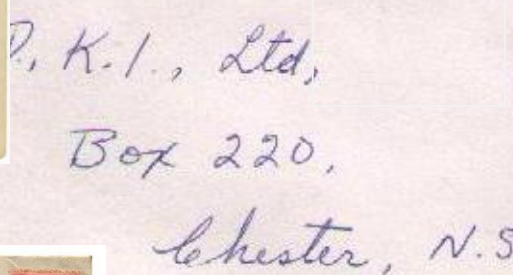 D., K.I., Ltd,
Box 220,
Chester, N.S